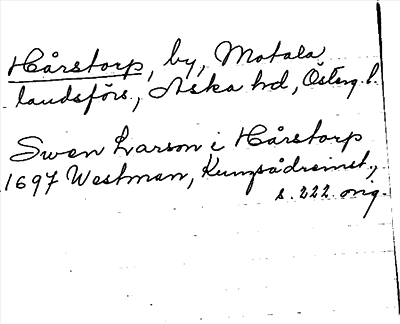 Hårstorp, by, Motala
landsförs., Aska hd, Österg. l.
Swen Larson i Hårstorp
1697 Westman, Kungsådreinst.,
s. 222 orig.